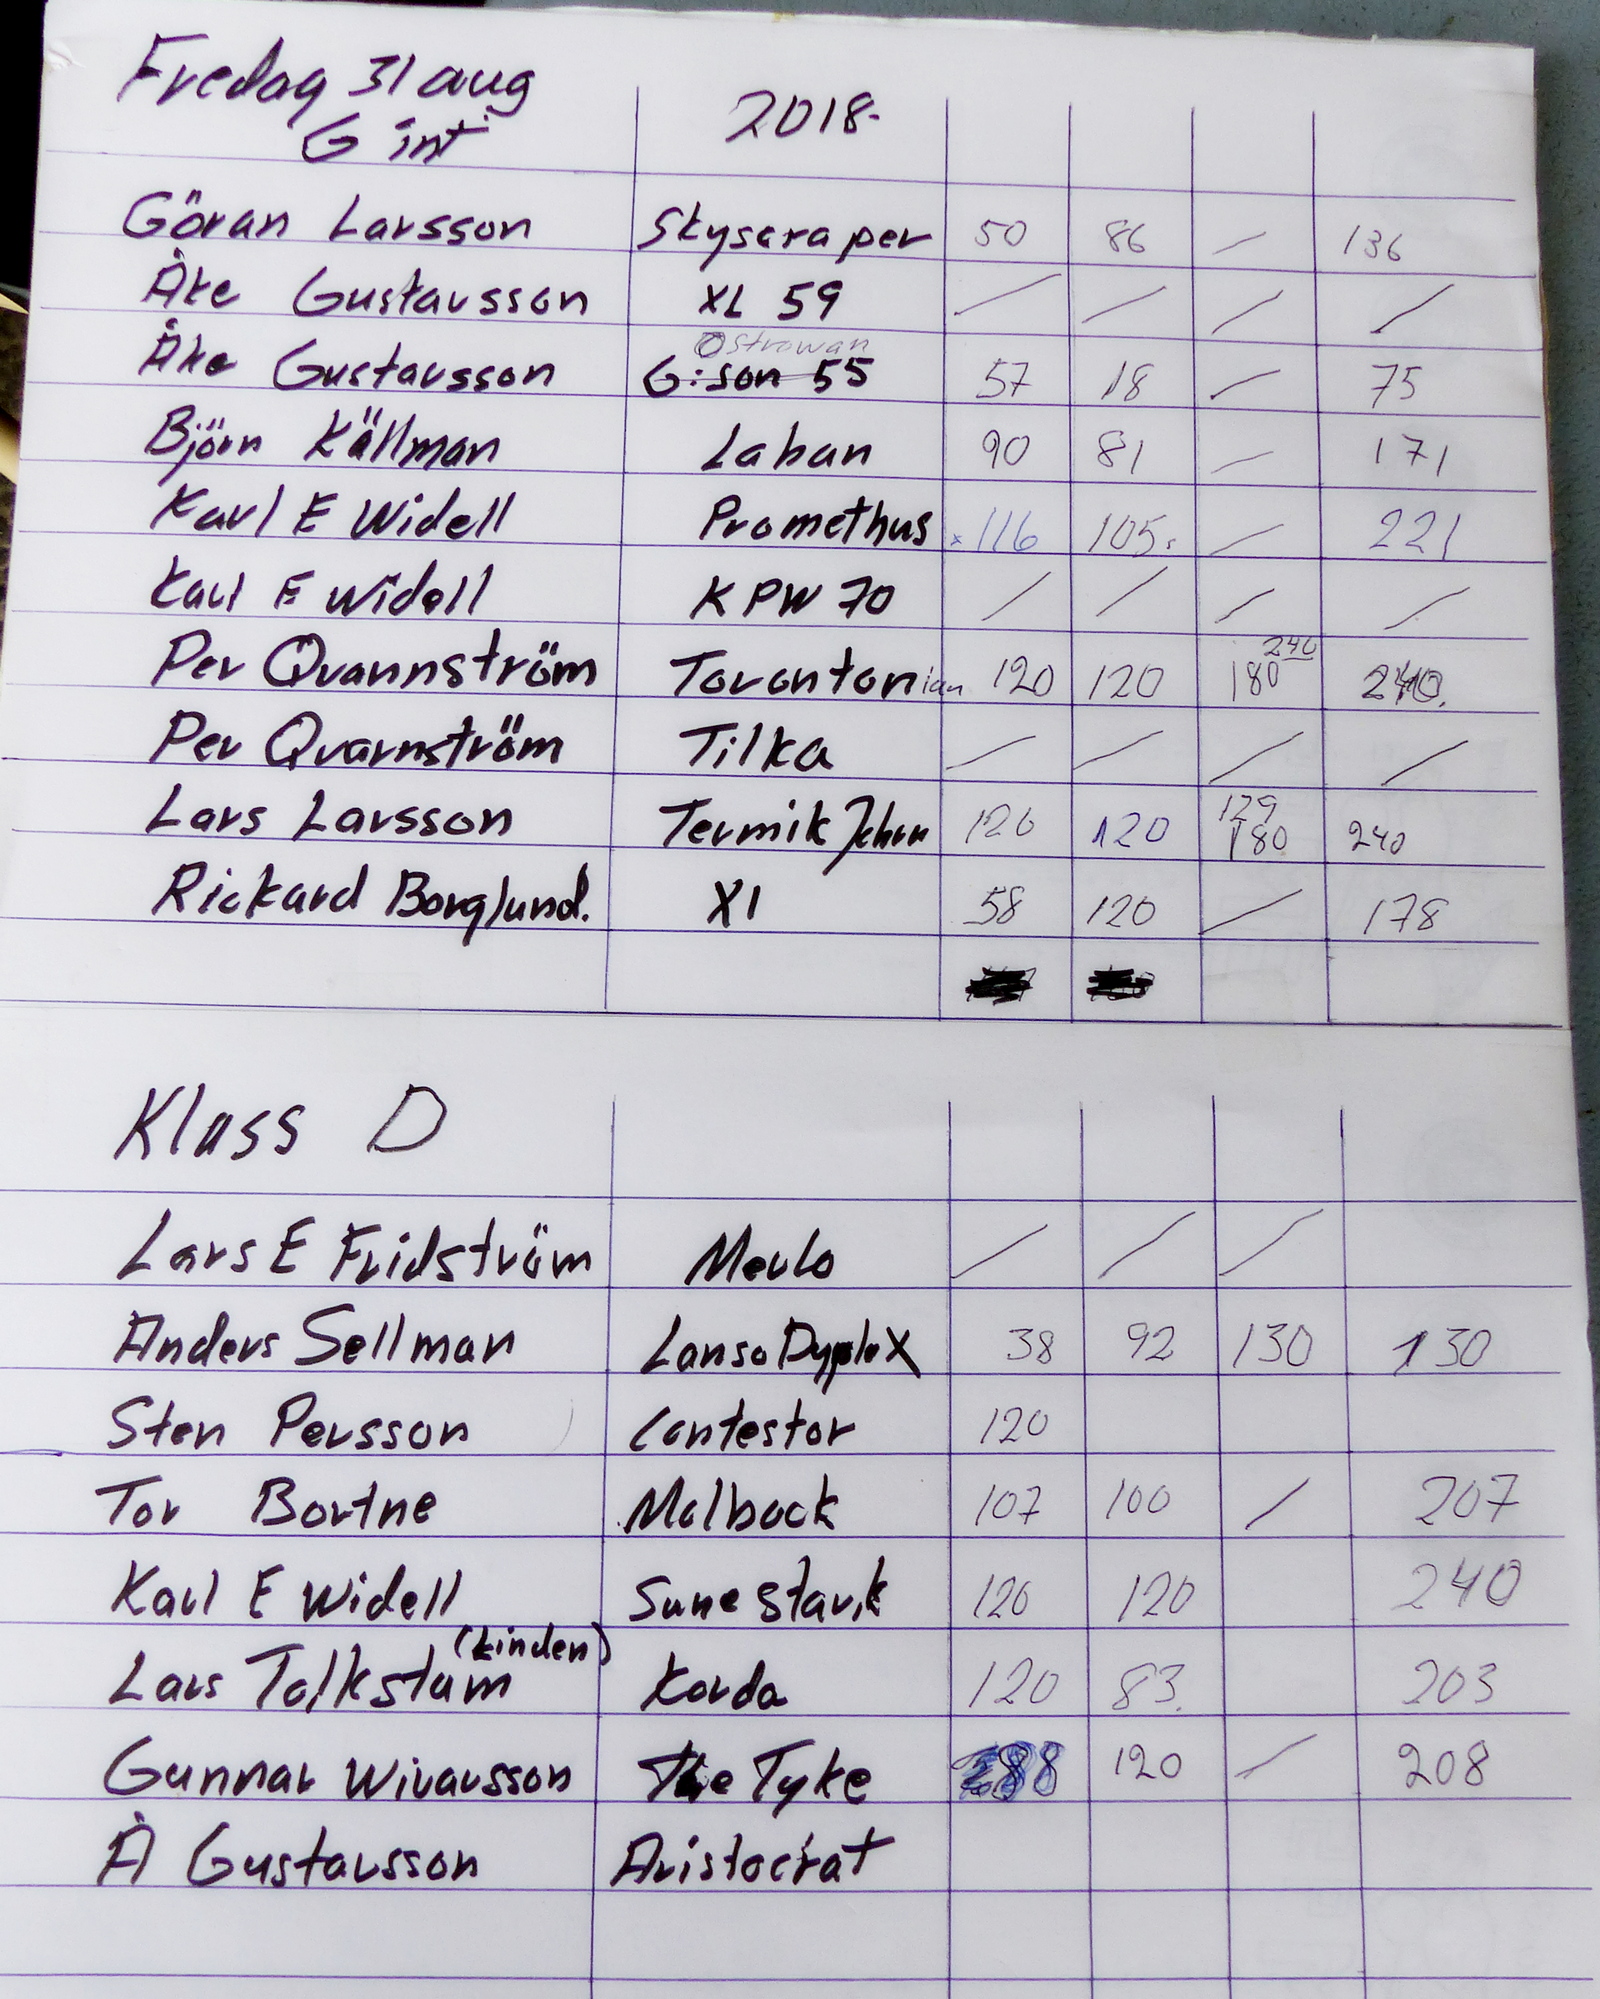 Fredag 31 aug 2018-
G int
Göran Larsson Skyscraper 50 86 / 136
Åke Gustavsson XL 59 / / / /
Ostrowan
Åke Gustavsson G:son 55 57 18 / 75
Björn Källman Laban 90 81 / 171
Karl E Widell Promethus x 116 105. / 221
Karl E Widell KPW 70 / / / /
240
Per Qvannström Torontonian 120 120 180 240.
Per Qvarnström Tilka / / / /
129
Lars Larsson Termik Johan 120 120 180 240
Rickard Borglund. XI 58 120 / 178
Klass D
Lars E Fridström Merlo / / /
Anders Sellman 38 92 130 130
Sten Persson Contestor 120
Tor Bortne Malback 107 100 / 207
Karl E Widell Sune Stark 120 120 240
(Linden)
Lars Tolkstam Korda 120 83. 203
Gunnar Wivarsson The Tyke 88 120 / 208
Å Gustavsson Aristocrat